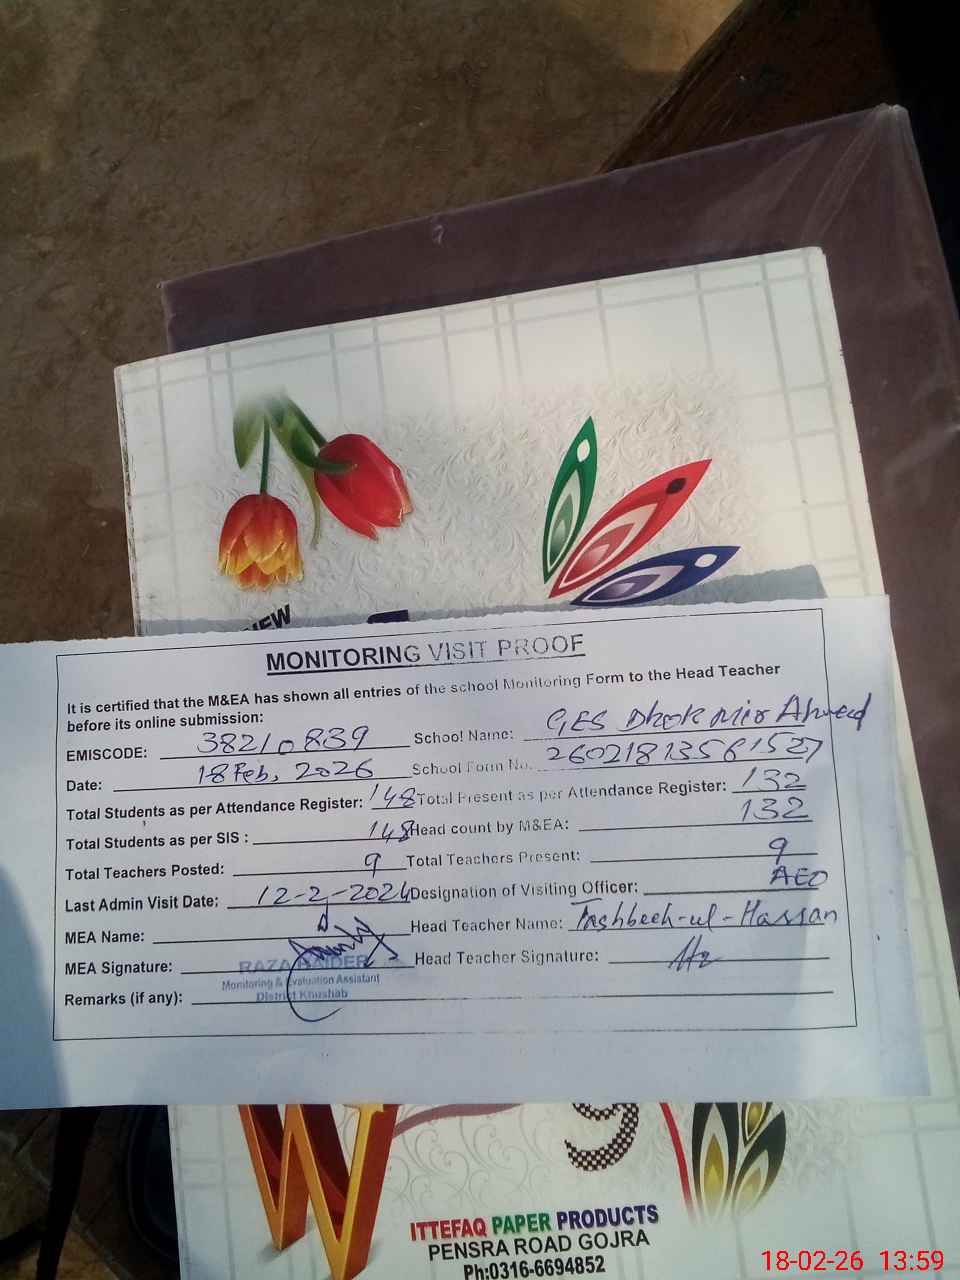 NEW
MONITORING VISIT PROOF
It is certified that the M&EA has shown all entries of the school Monitoring Form to the Head Teacher
before its online submission:
EMISCODE: 38210839 School Name: GES Dhok Mir Ahmed
Date: 18 Feb, 2026 School Form No. 26021813561527
Total Students as per Attendance Register: 148 Total Present as per Attendance Register: 132
Total Students as per SIS : 148 Head count by M&EA: 132
Total Teachers Posted: 9 Total Teachers Present: 9
Last Admin Visit Date: 12-2-2026 Designation of Visiting Officer: AEO
MEA Name: Head Teacher Name: Tashbeeh-ul-Hassan
MEA Signature: Head Teacher Signature:
RAZA HAIDER
Monitoring & Evaluation Assistant
District Khushab
Remarks (if any):
W 9
ITTEFAQ PAPER PRODUCTS
PENSRA ROAD GOJRA
Ph:0316-6694852
18-02-26 13:59